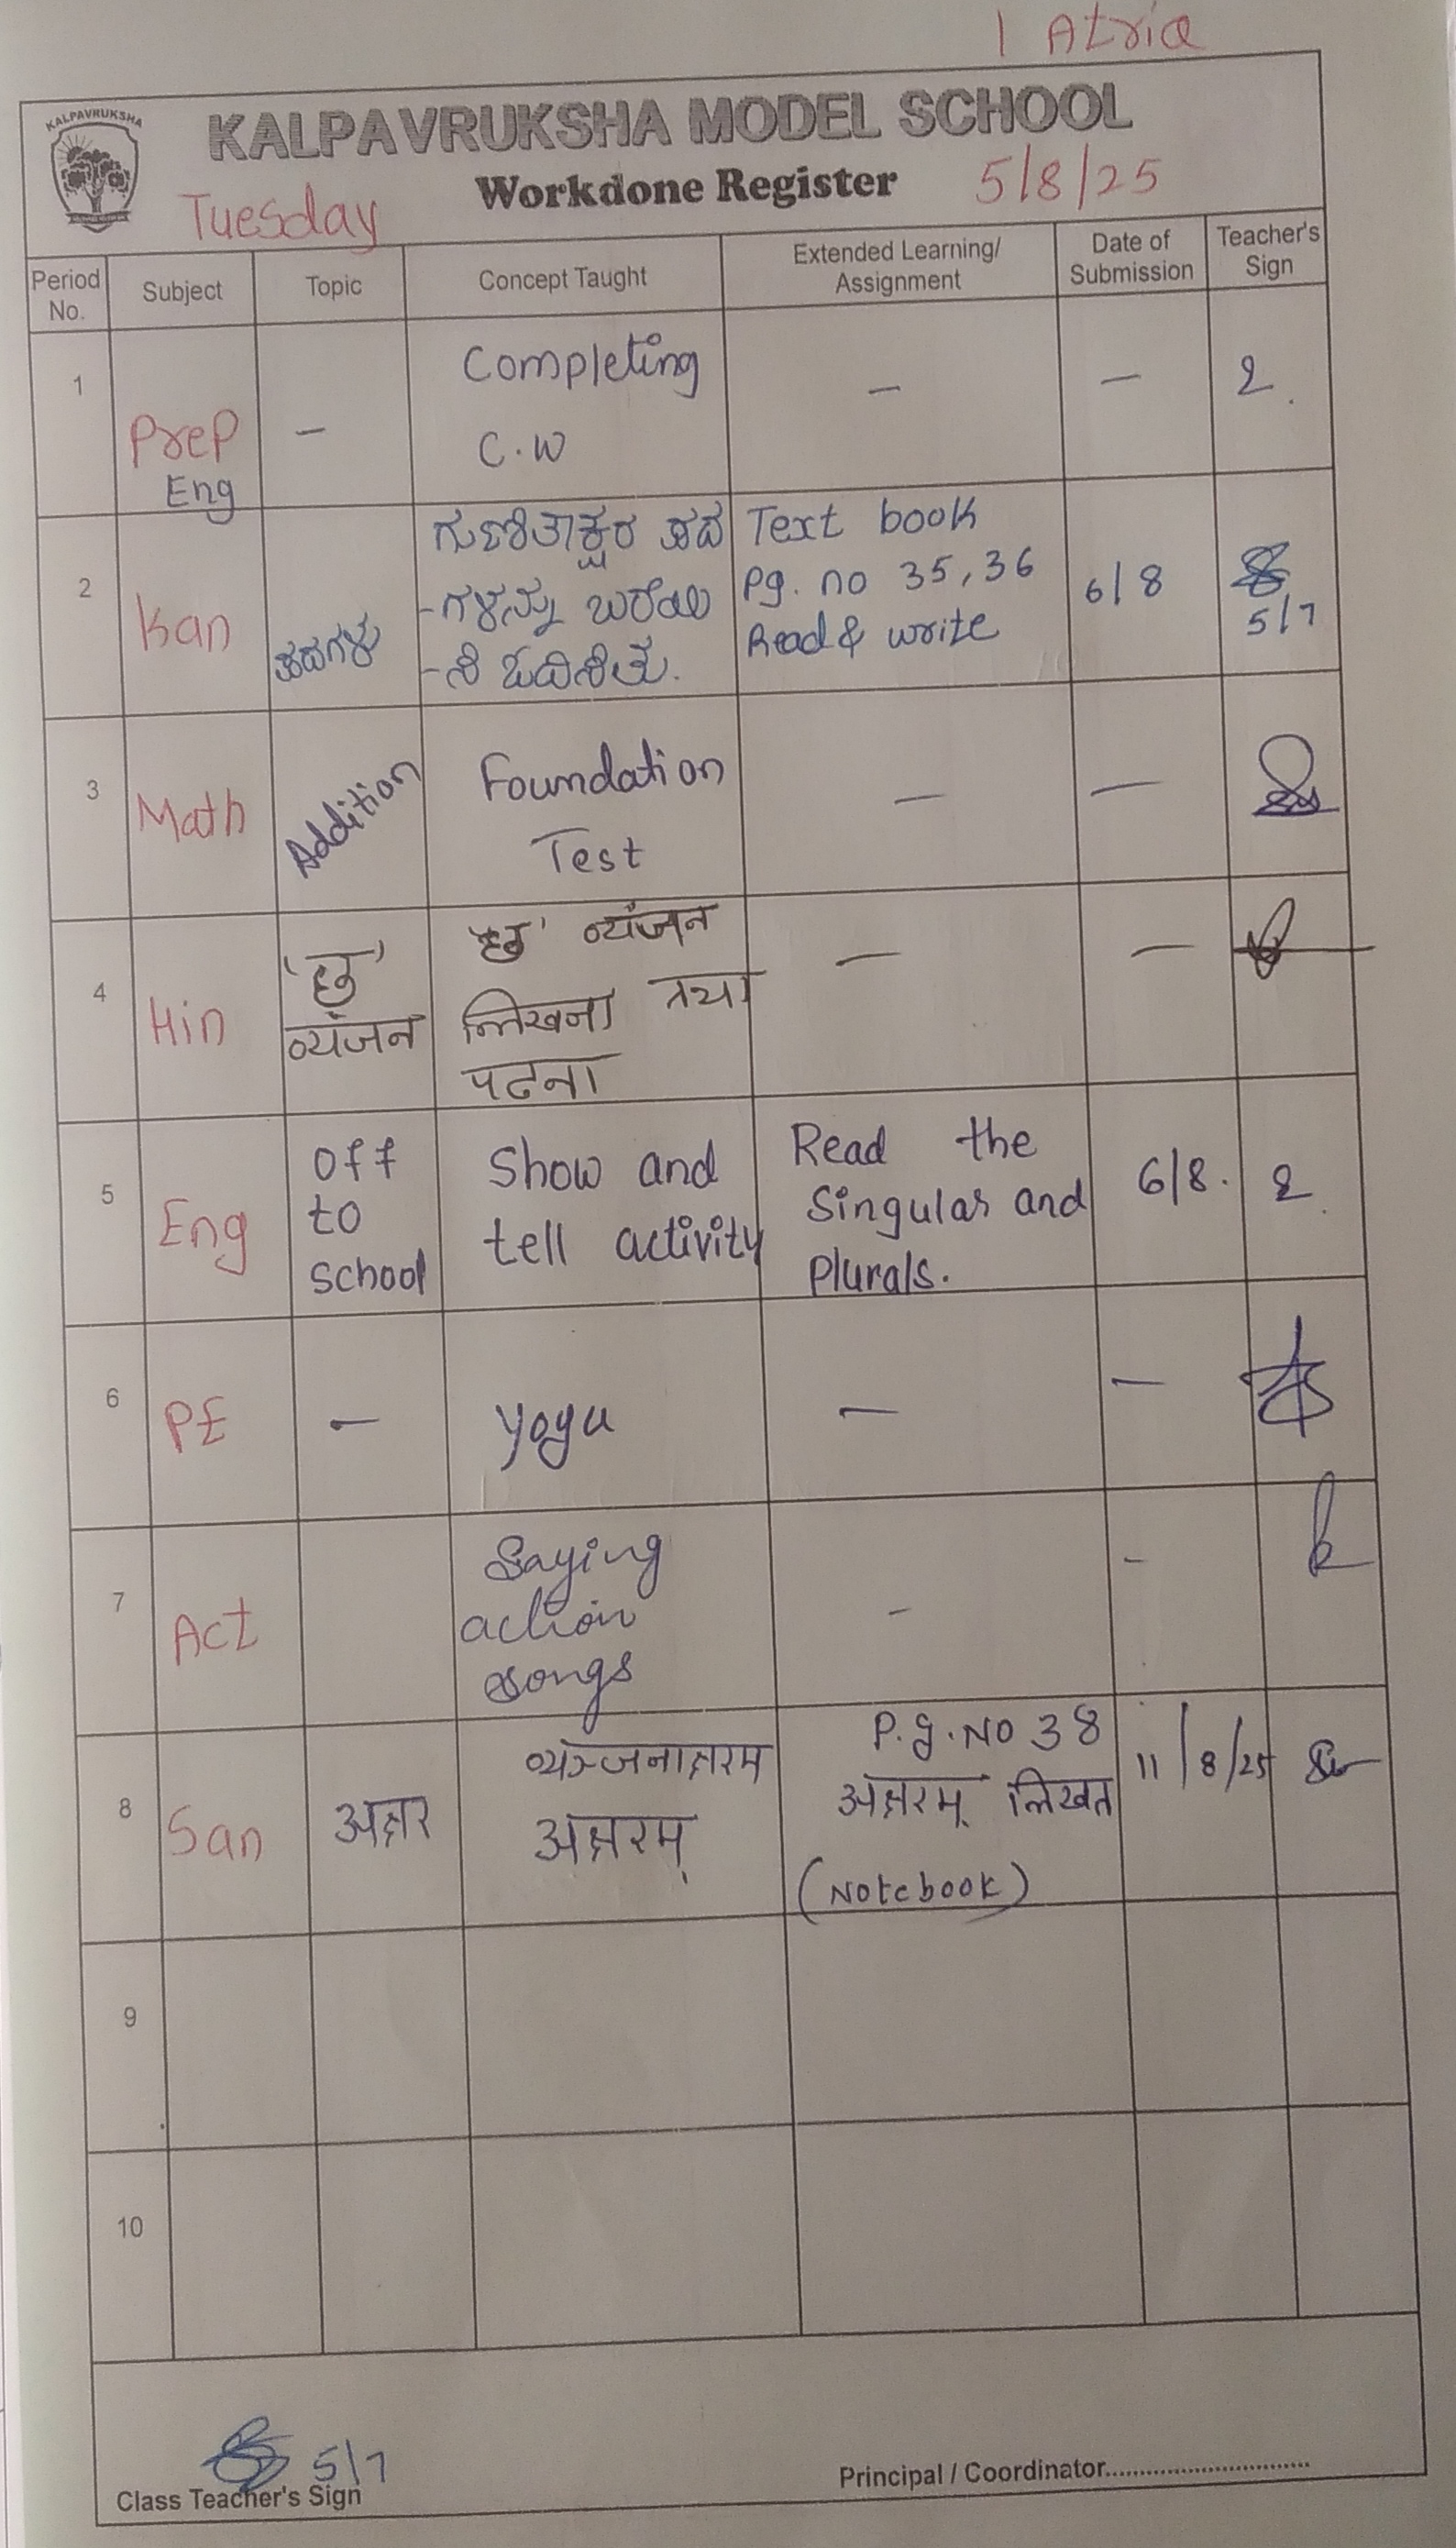 1 Atria
KALPAVRUKSHA
KALPAVRUKSHA MODEL SCHOOL
Tuesday Workdone Register 5/8/25
Period No. Subject Topic Concept Taught Extended Learning/ Assignment Date of Submission Teacher's Sign
1 Prep Eng - Completing C.W - -
2 Kan ಪದಗಳು ಗುಣಿತಾಕ್ಷರ ಪದ Text book 6/8
-ಗಳನ್ನು ಬರೆಯಿ Pg. no 35, 36 5/7
-ಸಿ ಓದಿಸಿತು. Read & write
3 Math Addition Foundation Test - -
4 Hin 'छ' व्यंजन 'छ' व्यंजन लिखना तथा पढना - -
5 Eng Off to school Show and tell activity Read the Singular and Plurals. 6/8.
6 PE - Yoga - -
7 Act Saying action songs - -
8 San अक्षर व्यञ्जनाक्षरम अक्षरम् P.g.No 38 अक्षरम् लिखत (Notebook) 11/8/25
9
10
5/7
Class Teacher's Sign Principal / Coordinator..............................